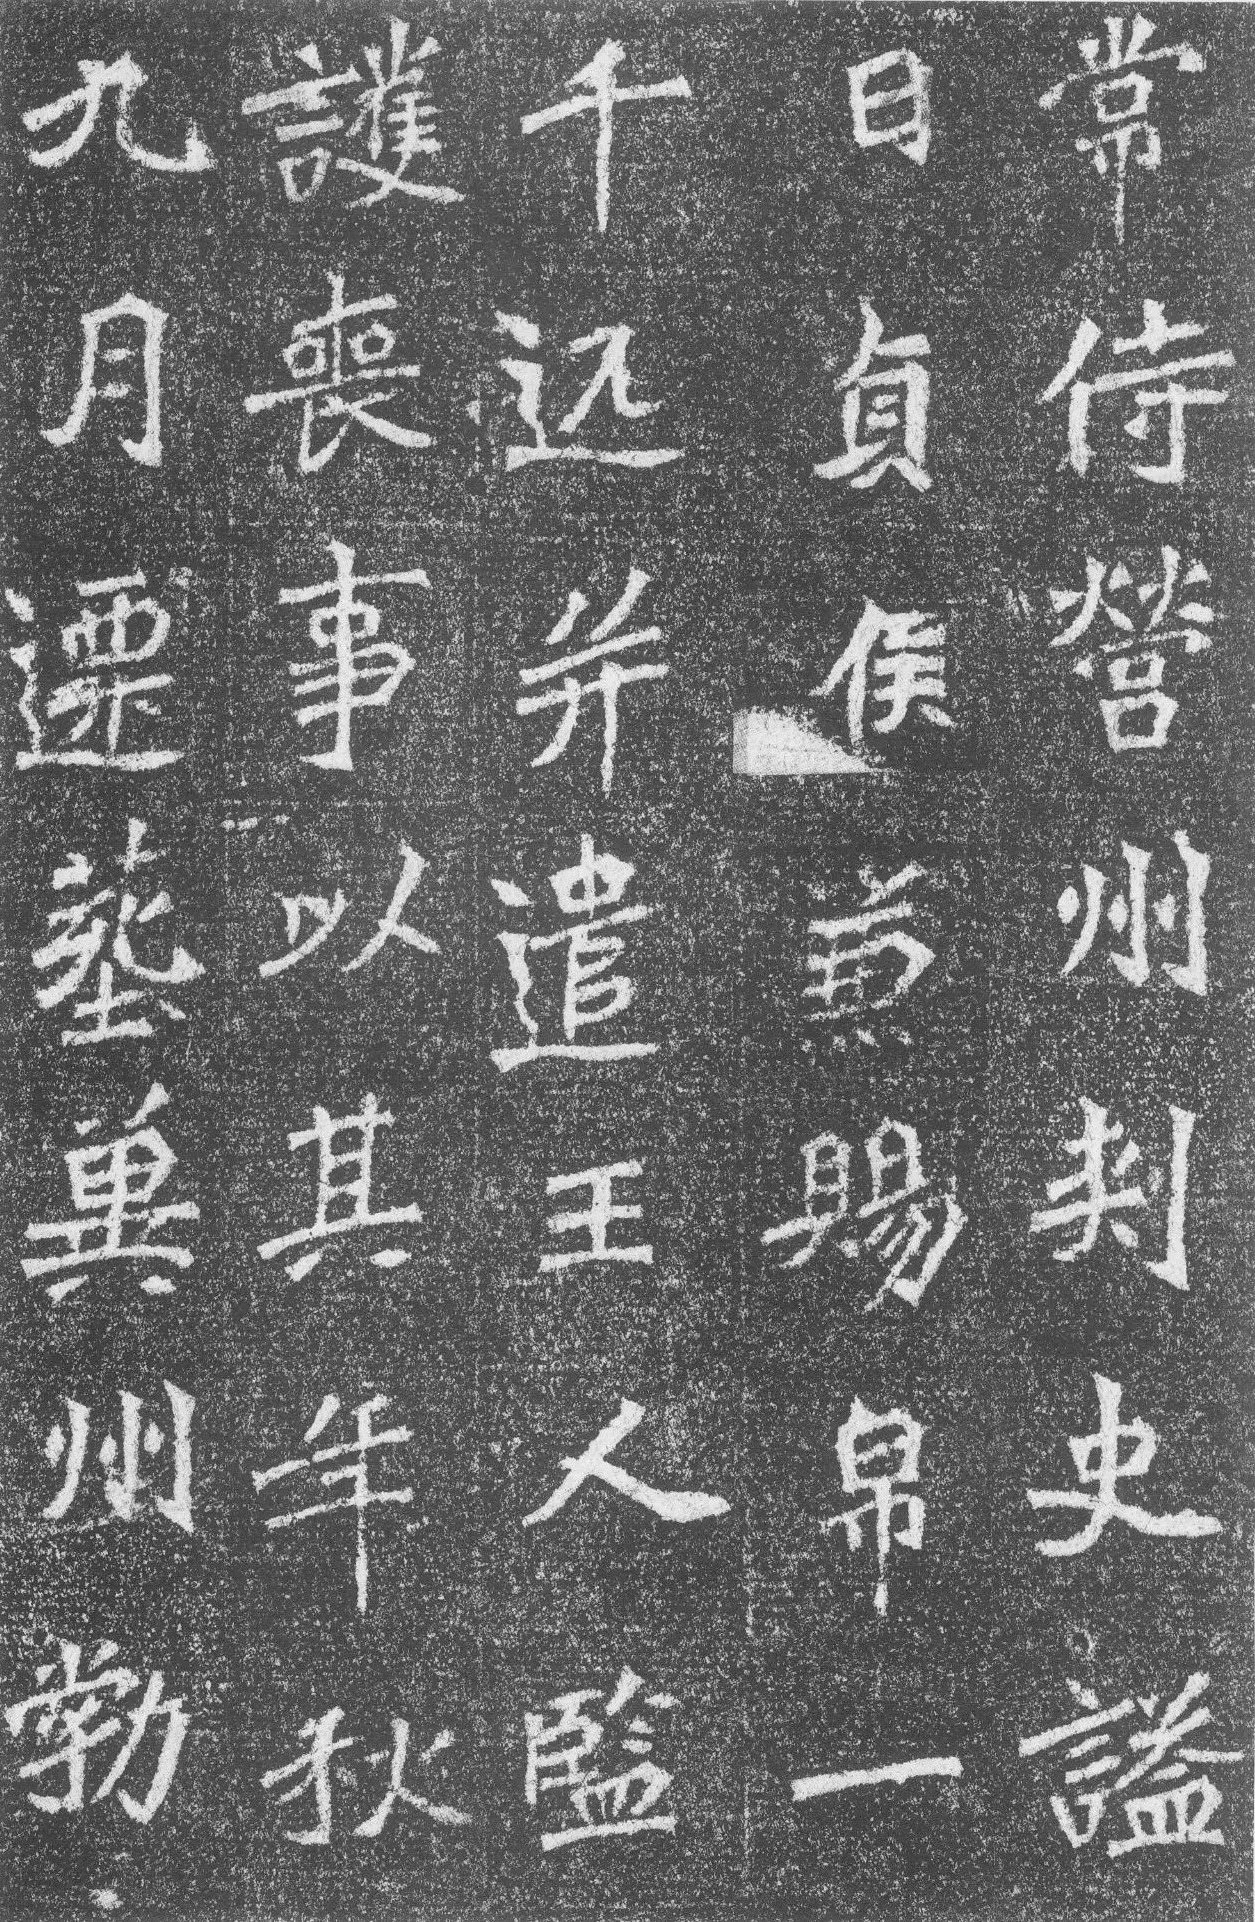 常侍營州刺史謚
曰貞侯兼賜帛一
千迊并遣王人監
護喪事以其年秋
九月遷葬冀州勃